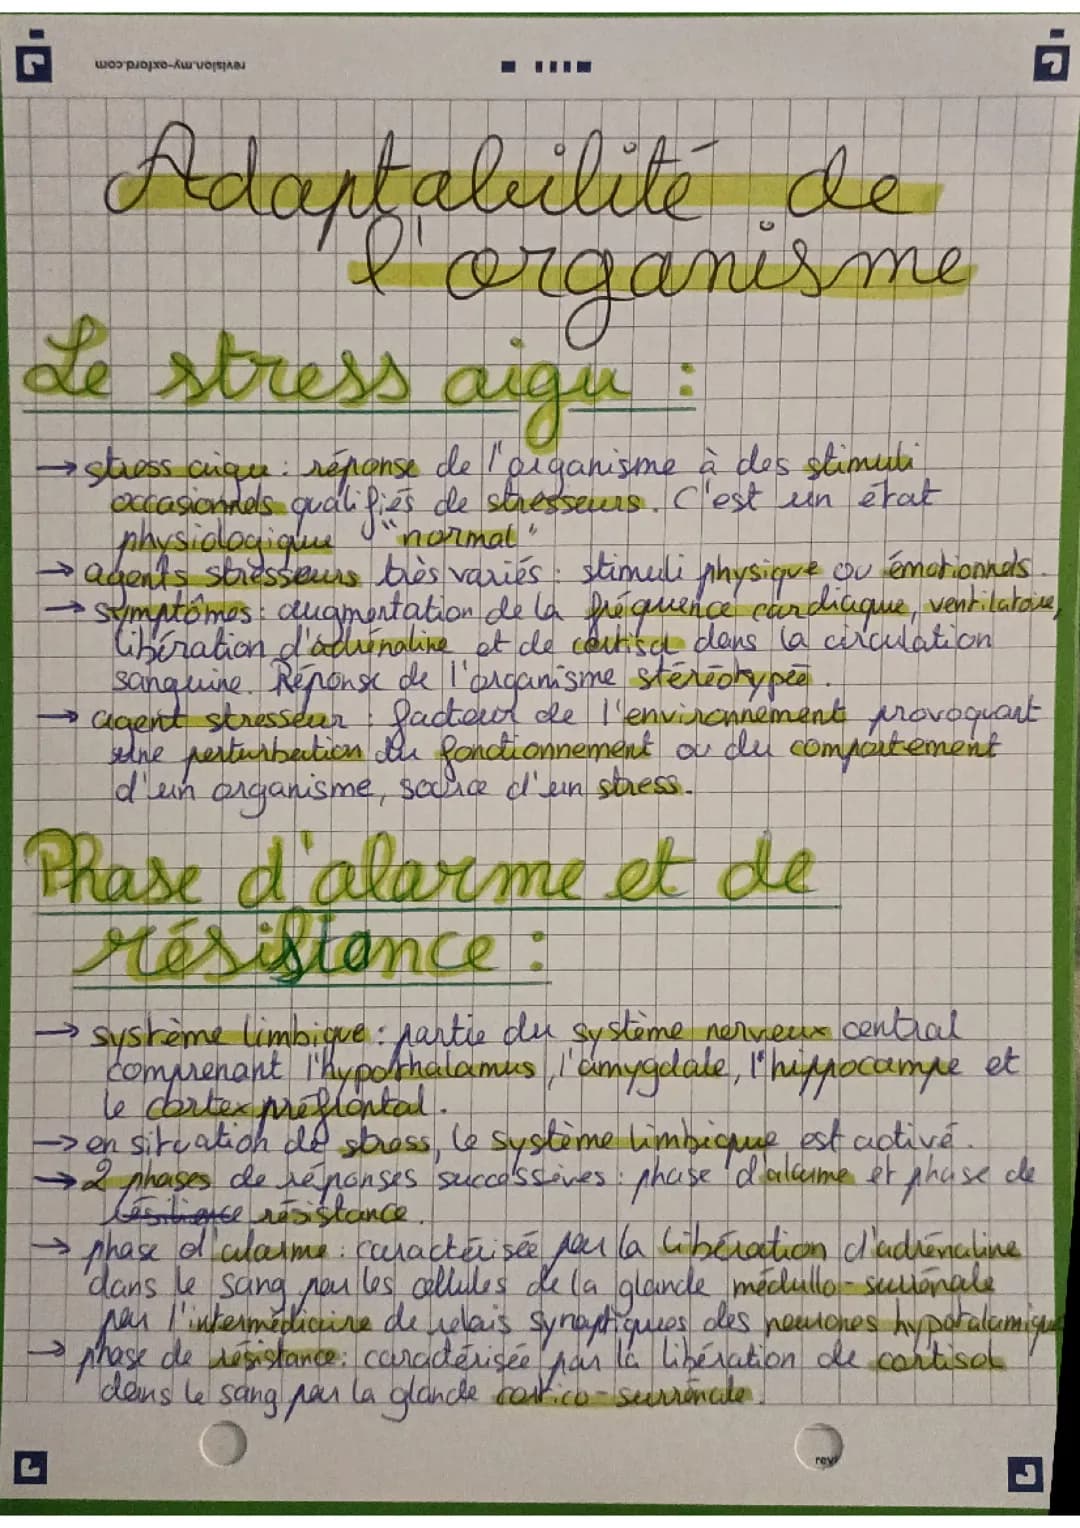 revision.my-oxford.com
Adaptabilité de
l'organisme
Le stress aigu :
→ stress aigu : réponse de l'organisme à des stimuli
occasionnels qualifiés de stresseurs. C'est un état
physiologique "normal"
→ agents stresseurs très variés : stimuli physique ou émotionnels.
→ symptômes : augmentation de la fréquence cardiaque, ventilatoire,
libération d'adrénaline et de cortisol dans la circulation
sanguine. Réponse de l'organisme stéréotypée.
→ agent stresseur : facteur de l'environnement provoquant
une perturbation du fonctionnement ou du comportement
d'un organisme, source d'un stress.
Phase d'alarme et de
résistance :
→ système limbique : partie du système nerveux central
comprenant l'hypothalamus, l'amygdale, l'hippocampe et
le cortex préfrontal.
→ en situation de stress, le système limbique est activé.
→ 2 phases de réponses successives : phase d'alarme et phase de
résilience résistance.
→ phase d'alarme : caractérisée par la libération d'adrénaline
dans le sang par les cellules de la glande médullo-surrénale
par l'intermédiaire de relais synaptiques des neurones hypotalamique
→ phase de résistance : caractérisée par la libération de cortisol
dans le sang par la glande cortico-surrénale.
revi